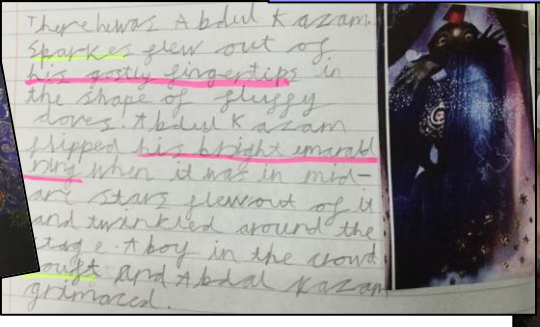 There he was Abdul Kazam.
Sparkes flew out of
his gostly fingertips in
the shape of fluffy
doves. Abdul Kazam
flipped his bright emarald
ring when it was in mid-
are stars flew out of it
and twinkled around the
stage. A boy in the crowd
and Abdal Kazam
grimaced.